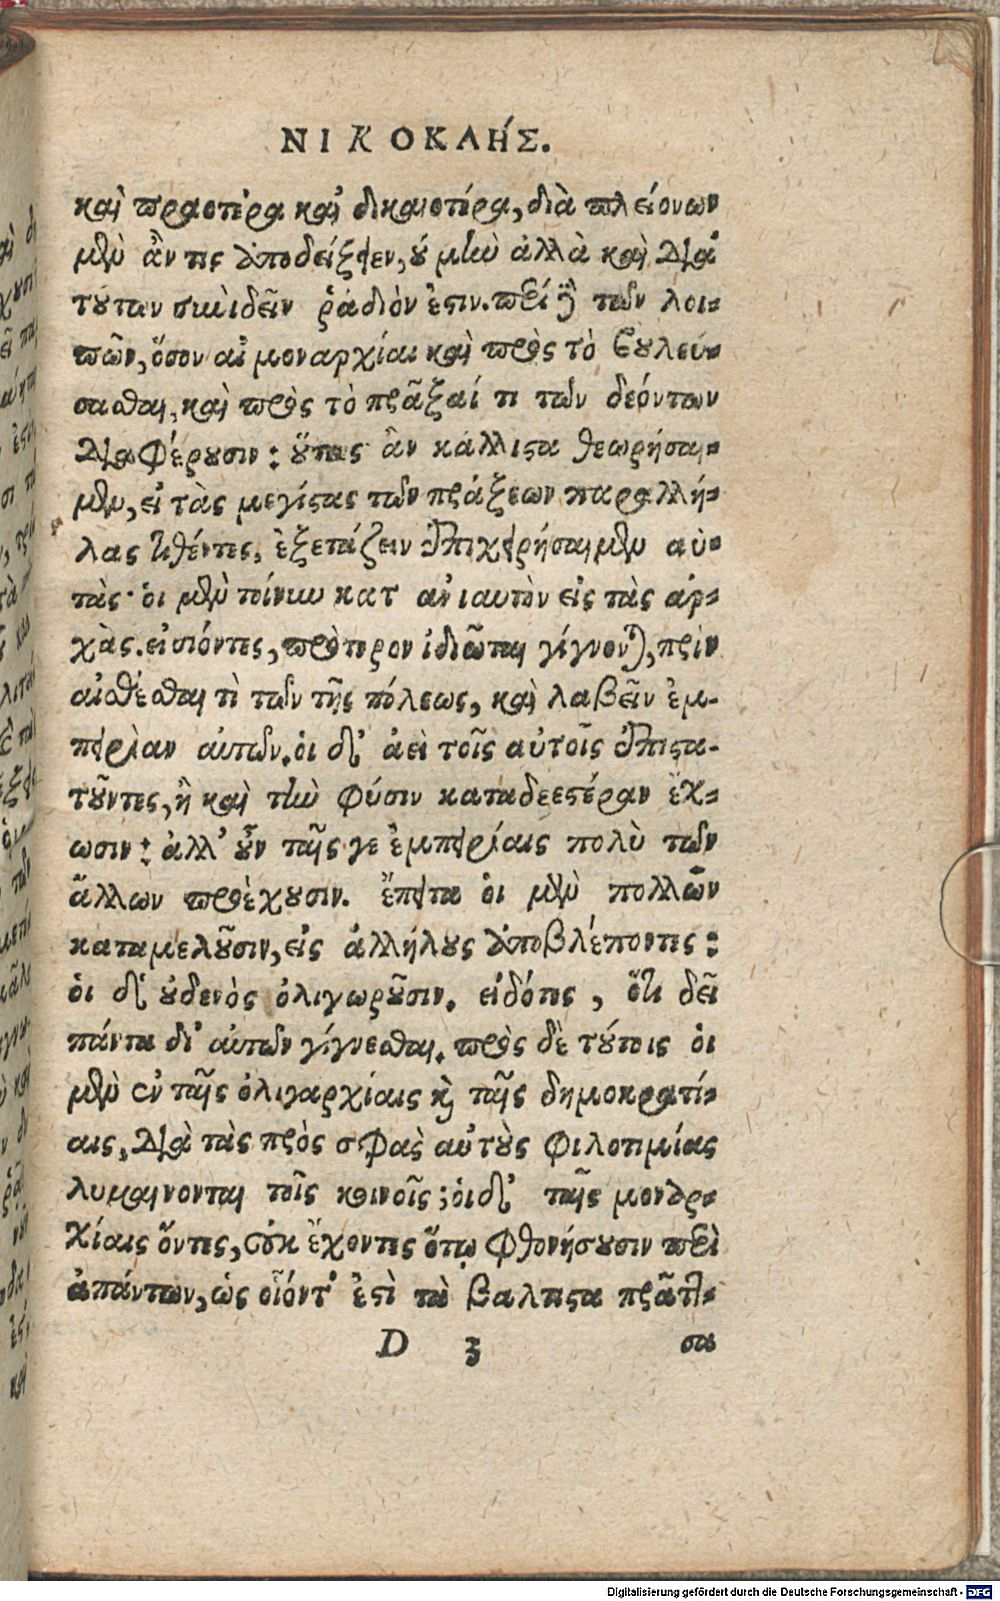 ΝΙΚΟΚΛΉΣ.
καὶ πραοτέρα καὶ δικαιοτέρα, διὰ πλειόνων
μὲν ἄν τις ἀποδείξειεν, οὐ μὴν ἀλλὰ καὶ διὰ
τούτων συνιδεῖν ῥάδιόν ἐστιν. περὶ δὲ τῶν λοι-
πῶν, ὅσον αἱ μοναρχίαι καὶ πρὸς τὸ βουλεύ-
σασθαι, καὶ πρὸς τὸ πρᾶξαί τι τῶν δεόντων
διαφέρουσιν: οὕτως ἂν κάλλιστα θεωρήσαι-
μεν, εἰ τὰς μεγίστας τῶν πράξεων παραλλή-
λας τιθέντες, ἐξετάζειν ἐπιχειρήσαιμεν αὐ-
τάς· οἱ μὲν τοίνυν κατ ἀνιαυτὸν εἰς τὰς ἀρ-
χὰς. εἰσιόντες, πρότερον ἰδιῶται γίγνονται, πρὶν
αἰσθέσθαι τὶ τῶν τῆς πόλεως, καὶ λαβεῖν ἐμ-
πειρίαν αὐτῶν. οἱ δ' ἀεὶ τοῖς αὐτοῖς ἐπιστα-
τοῦντες, ἢ καὶ τὴν φύσιν καταδεεστέραν ἔχ-
ωσιν: ἀλλ' οὖν ταῖς γε ἐμπειρίαις πολὺ τῶν
ἄλλων προέχουσιν. ἔπειτα οἱ μὲν πολλῶν
καταμελοῦσιν, εἰς ἀλλήλους ἀποβλέποντες:
οἱ δ' οὐδενὸς ὀλιγωροῦσιν. εἰδότες, ὅτι δεῖ
πάντα δι' αὐτῶν γίγνεσθαι. πρὸς δὲ τούτοις οἱ
μὲν ἐν ταῖς ὀλιγαρχίαις καὶ ταῖς δημοκρατί-
αις, διὰ τὰς πρὸς σφᾶς αὐτοὺς φιλοτιμίας
λυμαίνονται τοῖς κοινοῖς; οἱ δ' ταῖς μοναρ-
χίαις ὄντες, οὐκ ἔχοντες ὅτῳ φθονήσουσιν περὶ
ἁπάντων, ὡς οἷόντ' ἐστὶ τὰ βαλτιστα πράττ-
D 3 σου
Digitalisierung gefördert durch die Deutsche Forschungsgemeinschaft - DFG